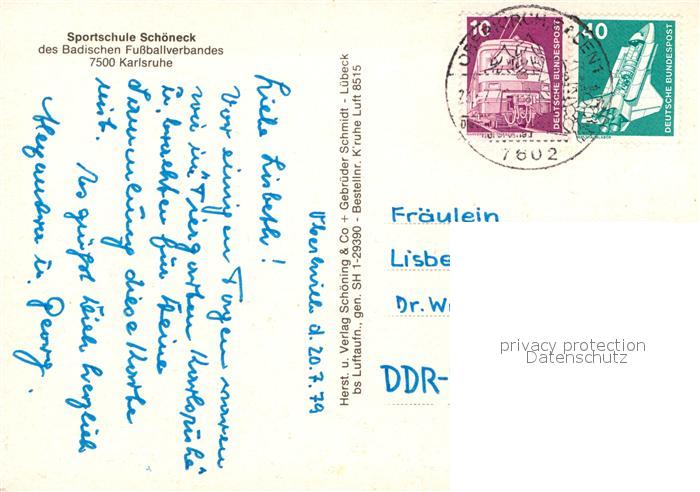 Sportschule Schöneck
des Badischen Fußballverbandes
7500 Karlsruhe
Oberkirch d. 20.7.79
Liebe Lisbeth!
Vor einigen Tagen waren
wir im "Tiergarten Karlsruhe"
u. brachten für Deine
Sammlung diese Karte
mit.
Es grüßt Dich herzlich
u. Georg.
Herst. u. Verlag Schöning & Co + Gebrüder Schmidt - Lübeck
bs Luftaufn., gen. SH 1-29390 - Bestellnr. K'ruhe Luft 8515
10
DEUTSCHE BUNDESPOST
40
DEUTSCHE BUNDESPOST
7602
Fräulein
Lisbe
Dr. W
DDR-
privacy protection
Datenschutz